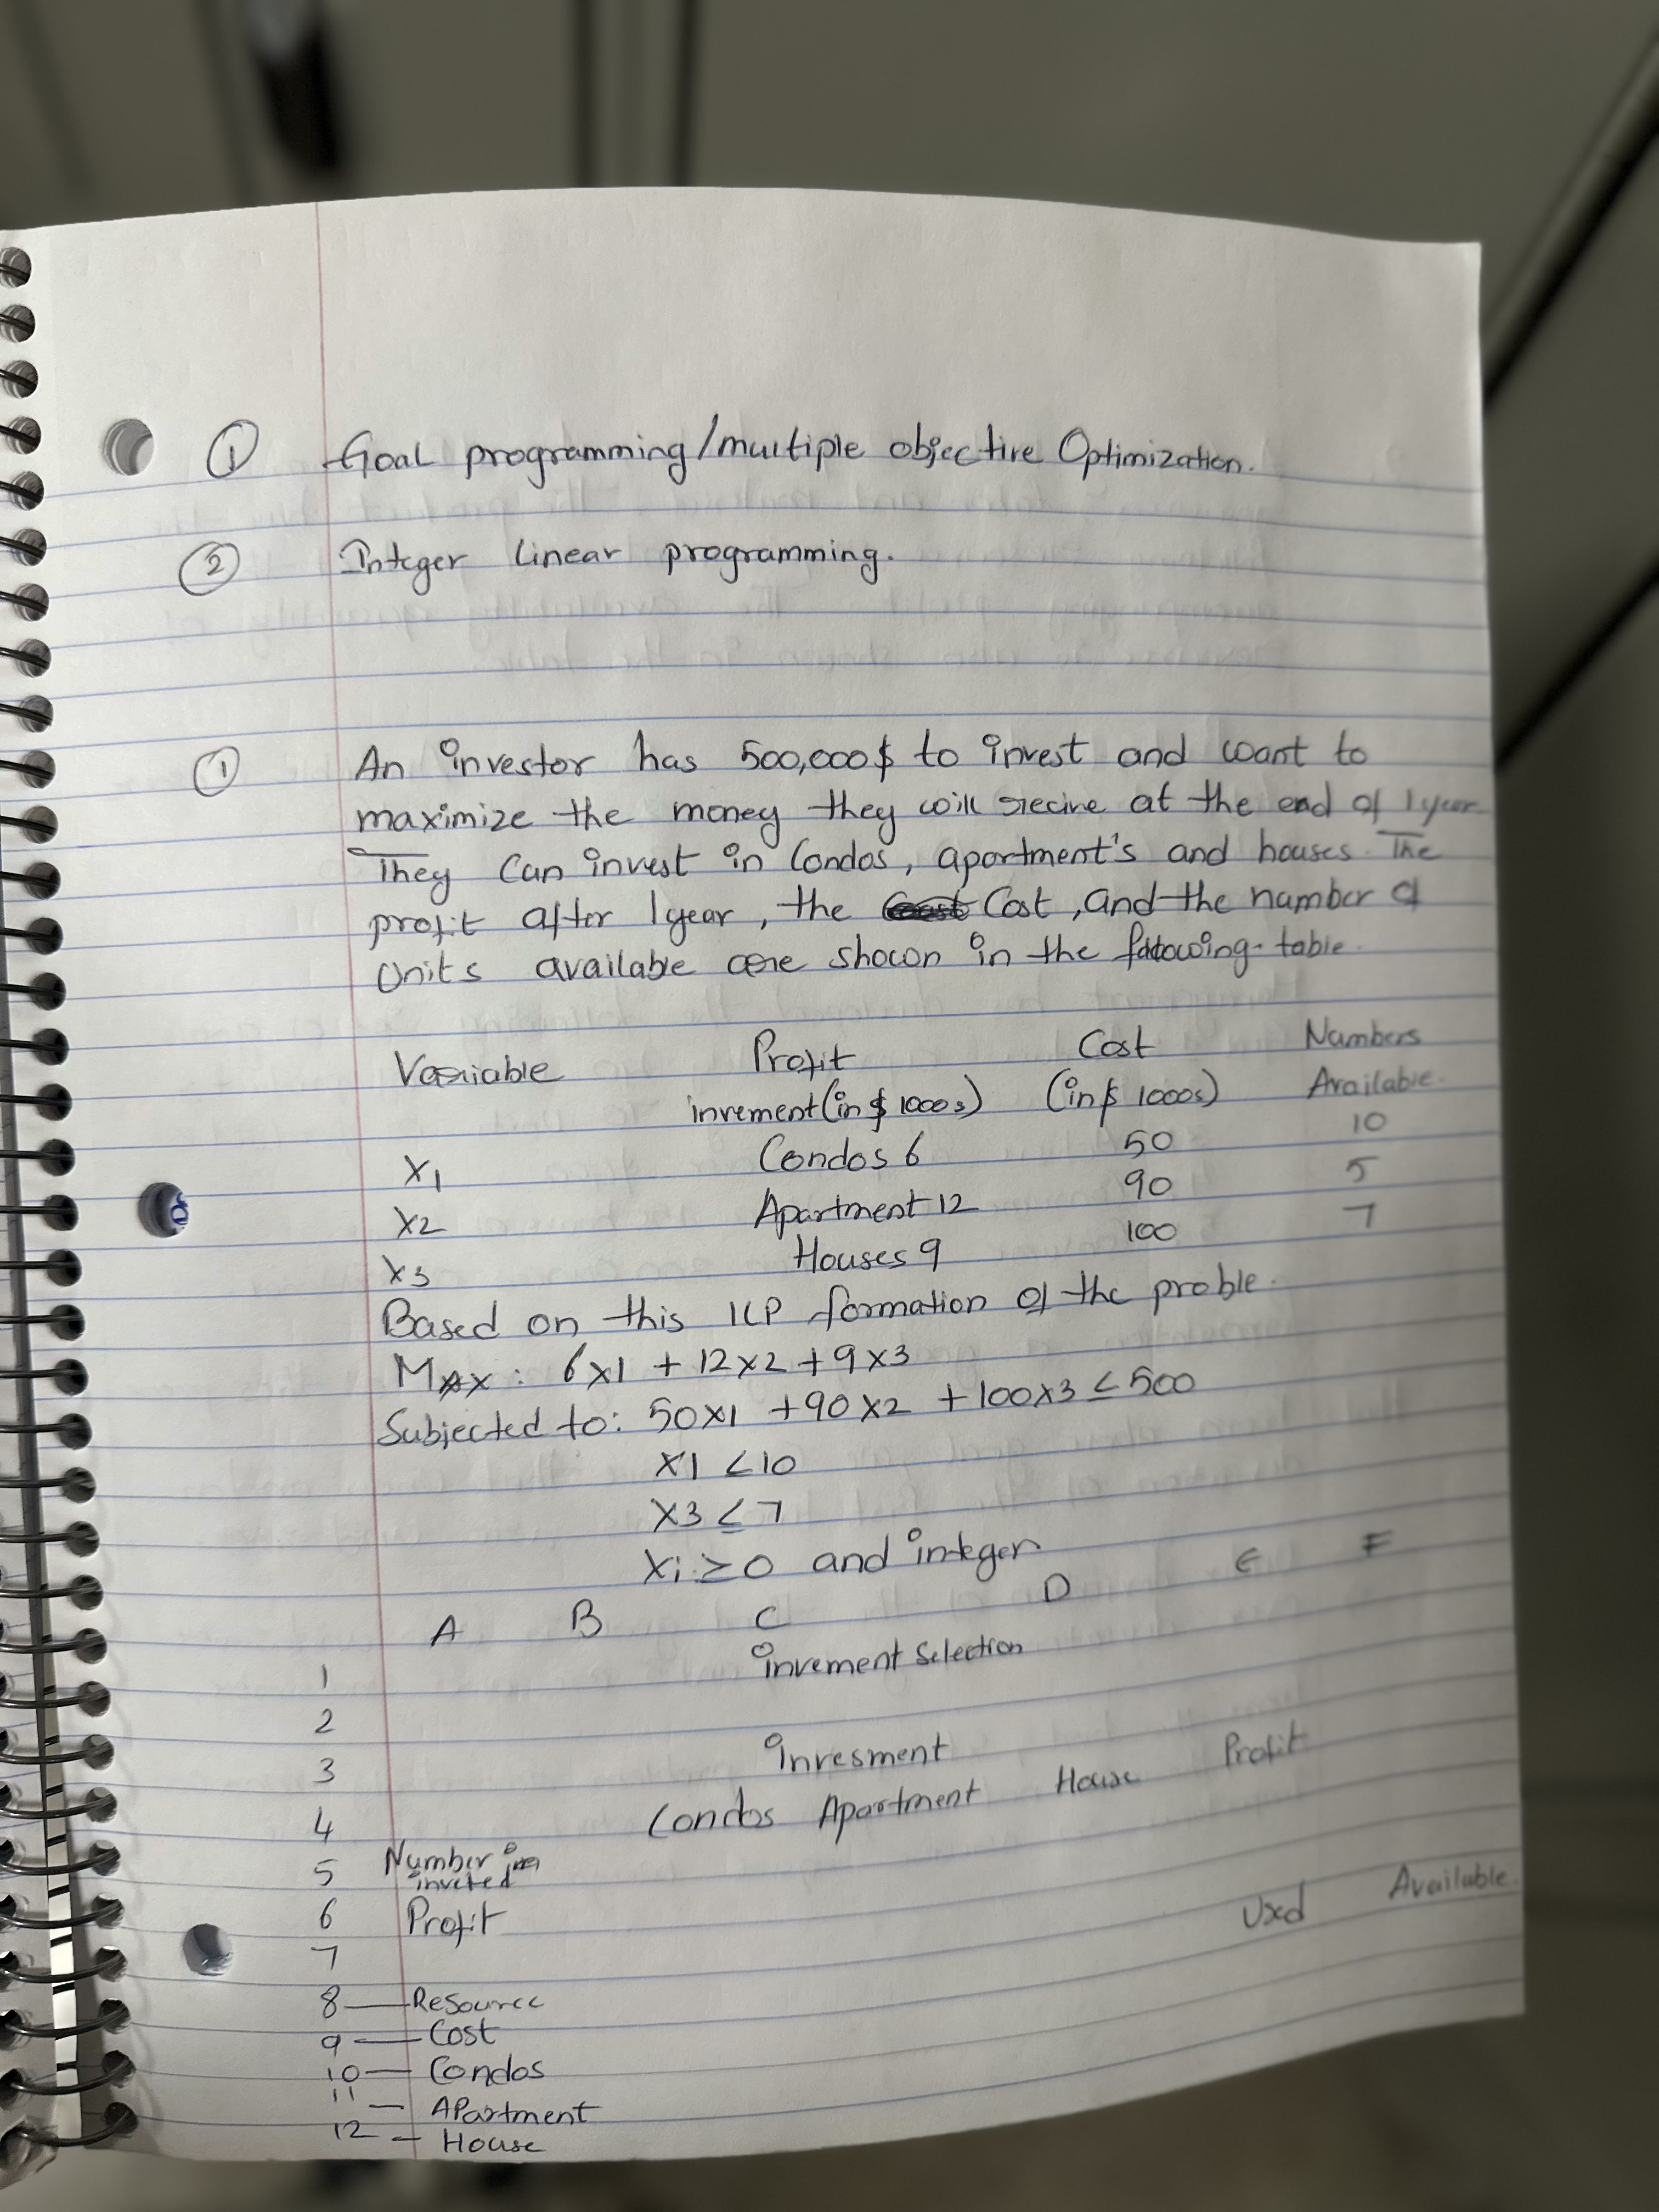 ① Goal programming/multiple objective Optimization.
② Integer linear programming.
① An investor has 500,000$ to invest and want to
maximize the money they will recive at the end of 1 year
They Can invest in Condos, apartment's and houses. The
profit after 1 year, the Cost, and the number of
Units available are shown in the following table.
Variable Profit Cost Numbers
invement (in $ 1000s) (in $ 1000s) Available.
X1 Condos 6 50 10
X2 Apartment 12 90 5
X3 Houses 9 100 7
Based on this ILP formation of the proble.
MAX: 6x1 + 12x2 + 9x3
Subjected to: 50x1 + 90x2 + 100x3 ≤ 500
X1 < 10
X3 ≤ 7
Xi ≥ 0 and integer
A B C D E F
1 invement Selection
2
3 Invesment
4 Condos Apartment House Profit
5 Number in invited
6 Profit
7 Used Available
8 — Resource
9 — Cost
10 — Condos
11 — APartment
12 — House